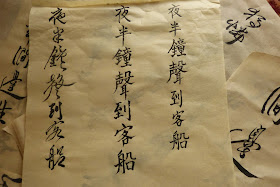 夜半鐘聲到客船
夜半鐘聲到客船
夜半鐘聲到客船